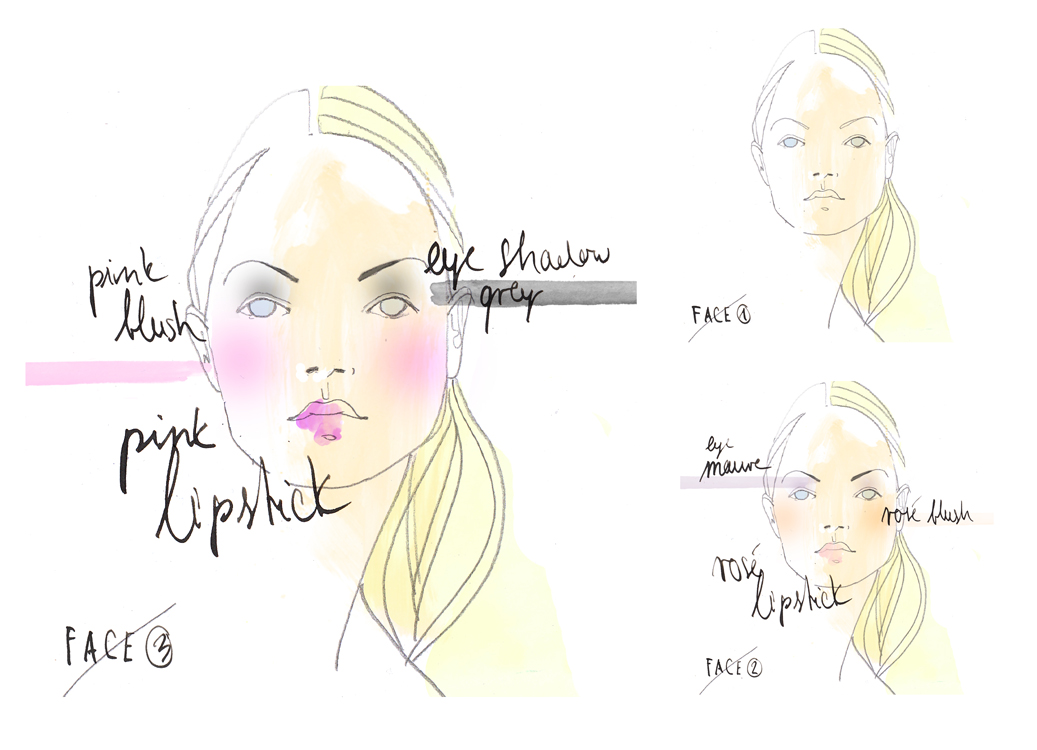 pink
blush
eye shadow
grey
pink
lipstick
FACE 3
FACE 1
eye
mauve
rosé blush
rosé
lipstick
FACE 2